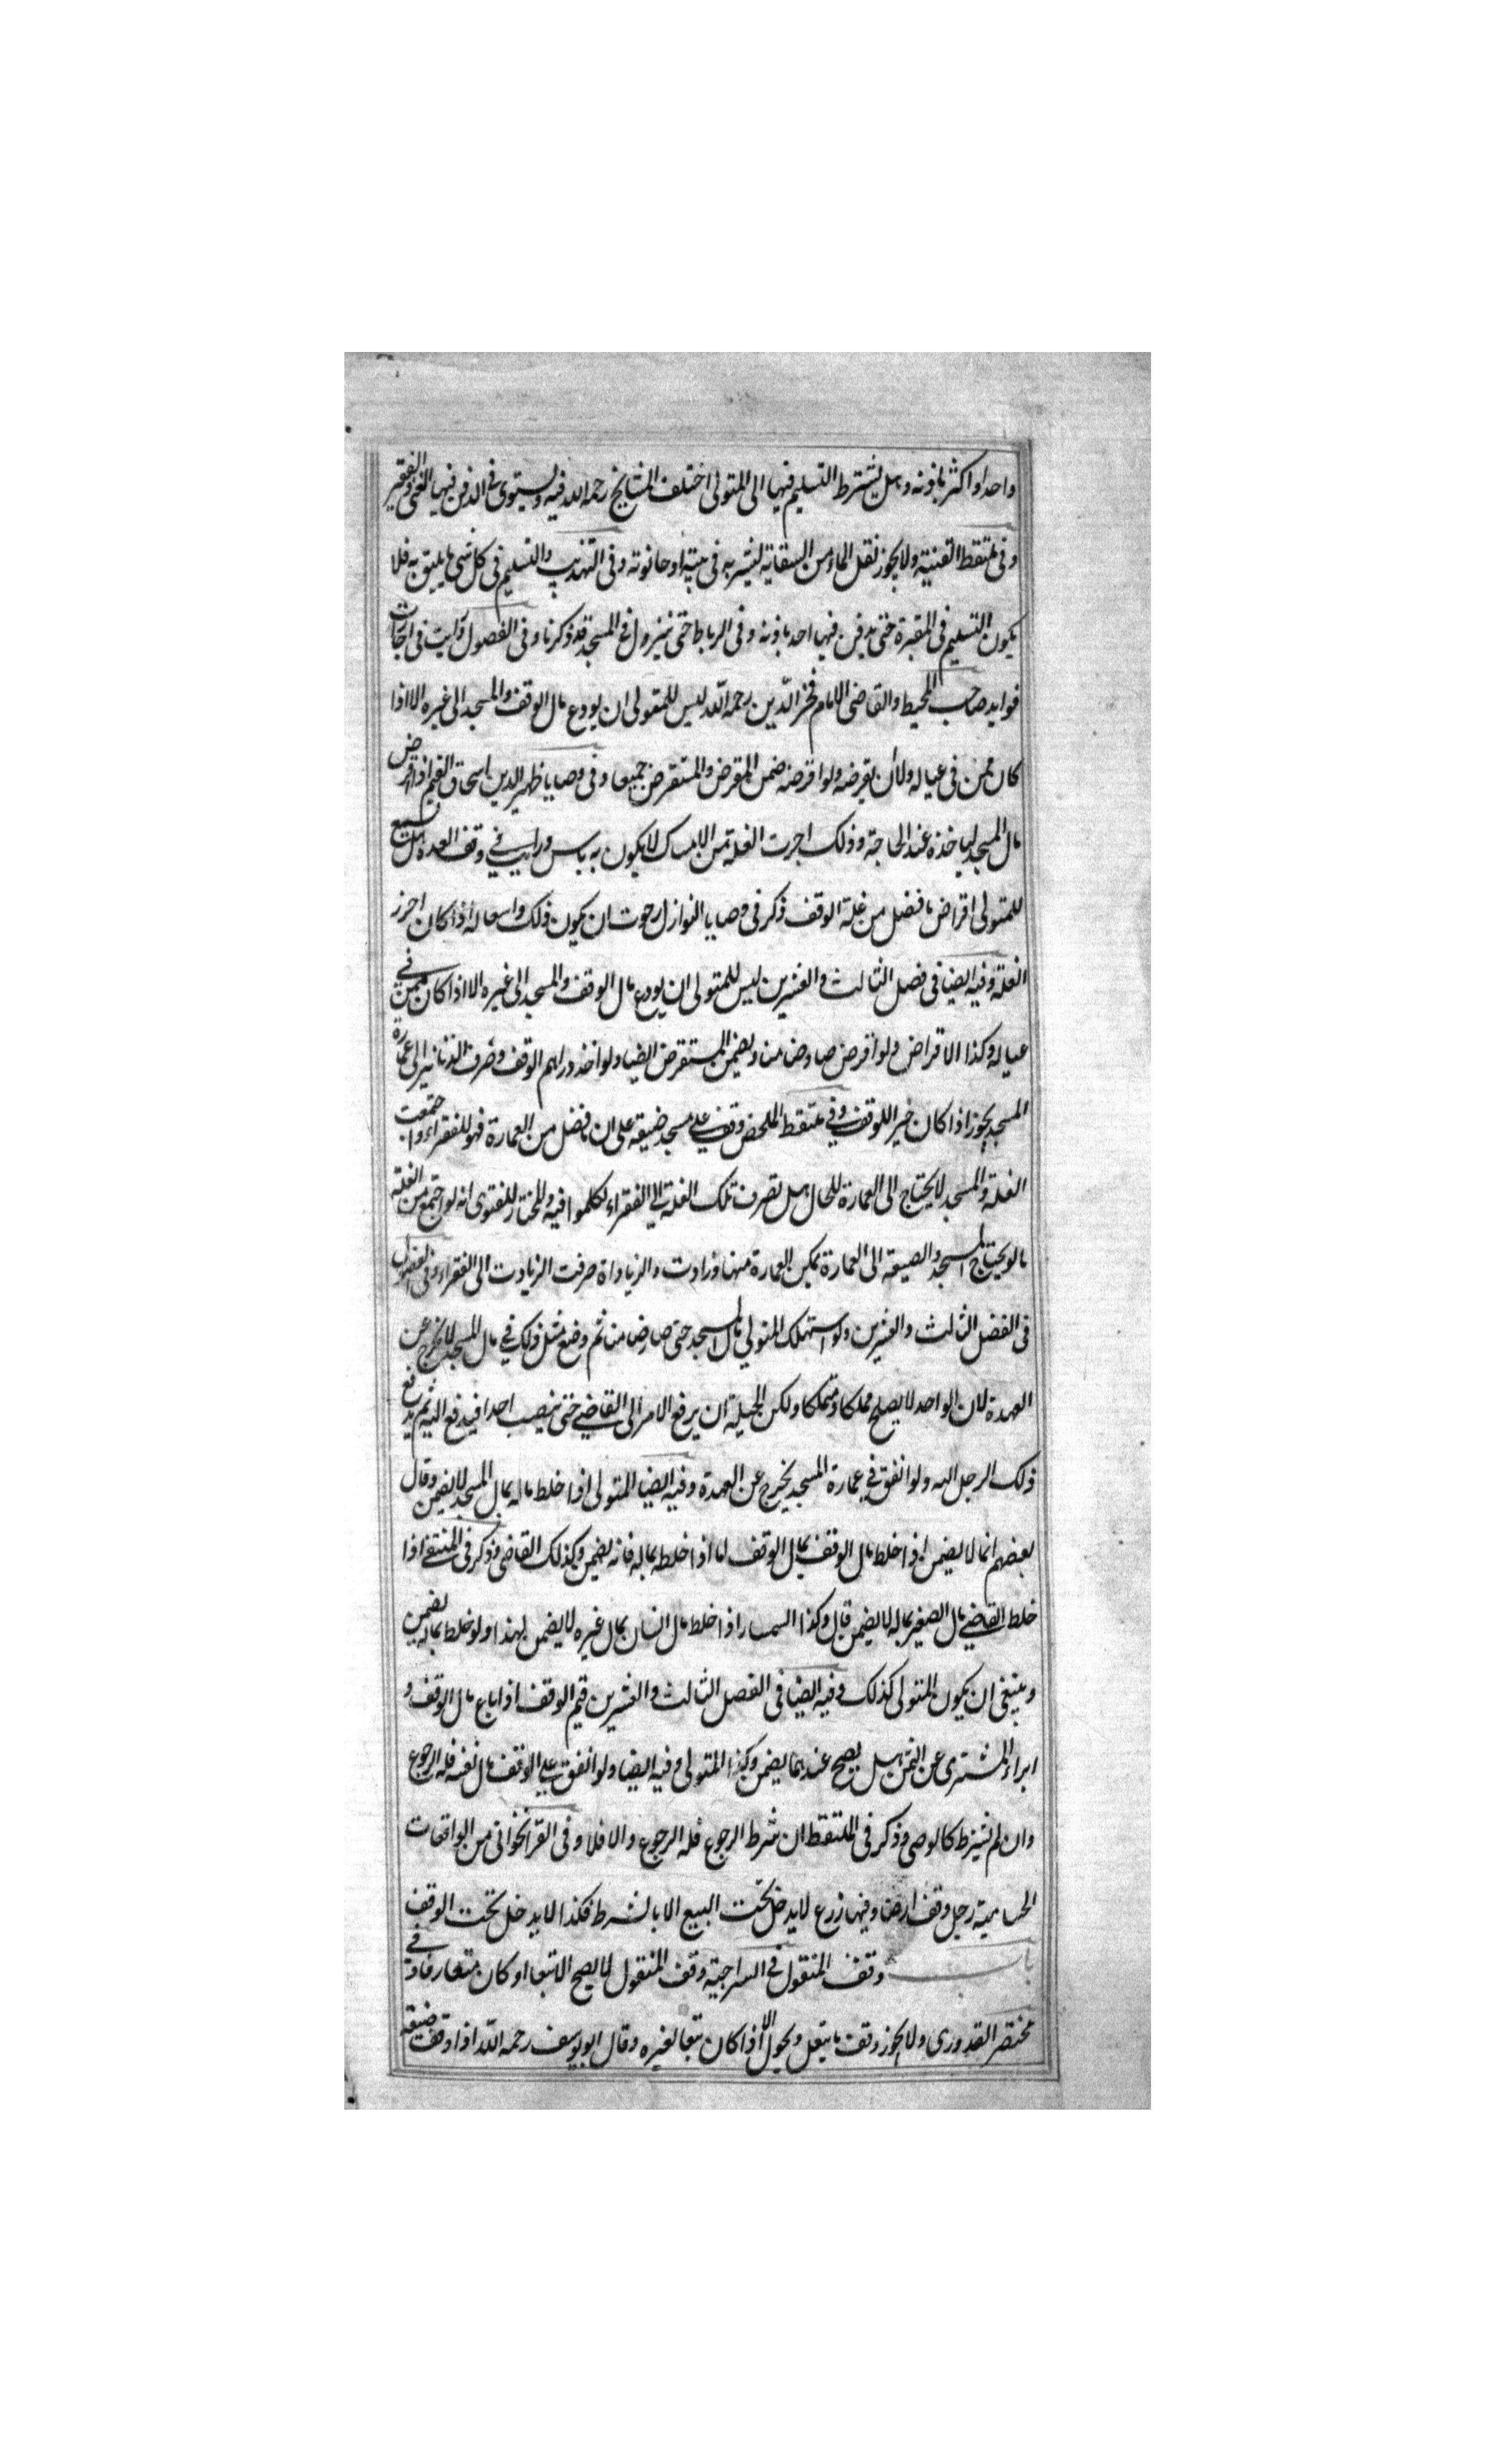 واحدا او اكثر باذنه وهل يشترط التسليم فيها الى المتولى اختلف المشايخ رحمه الله فيه ويستوى فى الدفن فيها الغنى والفقير
وفى ملتقط القنية ولا يجوز نقل الماء من السقاية ليشربه فى بيته او حانوته وفى التهذيب والتسليم فى كل شى ما يليق به فلا
يكون التسليم فى المقبرة حتى يدفن فيها احد باذنه وفى الرباط حتى ينزول فى المسجد قد ذكرنا وفى الفصول رايت فى اجارات
فوايد صاحب المحيط والقاضى الامام فخر الدين رحمه الله ليس للمتولى ان يودع مال الوقف والمسجد الى غيره الا اذا
كان ممن فى عياله ولا ان يقرضه ولو اقرضه ضمن المقرض والمستقرض جميعا وفى وصايا ظهير الدين اسحاق القيم اذا اقرض
مال المسجد لياخذه عند الحاجة وذلك اجرت الغلة من الامساك لا يكون به باس ورايت فى وقف العدة هل يسع
للمتولى اقراض ما فضل من غلة الوقف ذكر فى وصايا النوازل رجوت ان يكون ذلك واسعا له اذا كان احرز
الغلة وفيه ايضا فى فصل الثالث والعشرين ليس للمتولى ان يودع مال الوقف والمسجد الى غيره الا اذا كان ممن فى
عياله وكذا الاقراض ولو اقرض صار ضامنا ويضمن المستقرض ايضا ولو اخذ دراهم الوقف وصرف الدنانير الى عمارة
المسجد يجوز اذا كان خيرا للوقف وفى ملتقط الملخص وقف على مسجد ضيعة على ان ما فضل من العمارة فهو للفقراء واجتمعت
الغلة والمسجد لا يحتاج الى العمارة للحال هل تصرف تلك الغلة الى الفقراء تكلموا فيه والمختار للفتوى انه لو اجتمع من الغلة
ما لو يحتاج المسجد والضيعة الى العمارة يمكن العمارة منها وزادت والزياداة صرفت الزيادت الى الفقراء وفى الفصول
فى الفضل الثالث والعشرين ولو استهلك المتولي مال المسجد حتى صار ضامنا ثم وضع مثل ذلك في مال المسجد لا يخرج عن
العهدة لان الواحد لا يصلح مملكا ومتملكا ولكن الحيلة ان يرفع الامر الى القاضي حتى ينصب احدا فيدفع اليه ثم يدفع
ذلك الرجل اليه ولو انفق في عمارة المسجد يخرج عن العهدة وفيه ايضا المتولى اذا خلط ماله بمال المسجد لا يضمن وقال
بعضهم انما لا يضمن اذا خلط مال الوقف بمال الوقف اما اذا خلطه بماله فانه يضمن وكذلك القاضى وذكر فى المنتقى اذا
خلط القاضي مال الصغير بماله لا يضمن قال وكذا السمسار اذا خلط مال انسان بمال غيره لا يضمن لهذا ولو خلط بماله يضمن
وينبغى ان يكون المتولى كذلك وفيه ايضا فى الفصل الثالث والعشرين قيم الوقف اذا باع مال الوقف و
ابراء المشترى عن الثمن هل يصح عندهما يضمن وكذا المتولى وفيه ايضا ولو انفق على الوقف مال نفسه فله الرجوع
وان لم يشترط كالوصى وذكر فى الملتقط ان شرط الرجوع فله الرجوع والا فلا وفى القراخوانى من الواقعات
الحسامية رجل وقف ارضا وفيها زرع لا يدخل تحت البيع الا بالشرط فكذا لا يدخل تحت الوقف
باب وقف المنقول فى السراجية وقف المنقول لا يصح الا تبعا او كان متعارفا وفي
مختصر القدورى ولا يجوز وقف ما ينقل ويحول الا اذا كان تبعا لغيره وقال ابو يوسف رحمه الله اذا وقف ضيعة